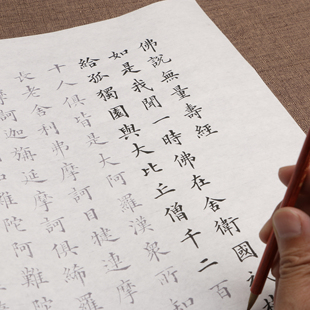 佛說無量壽經
如是我聞一時佛在舍衛國
給孤獨園與大比丘僧千二百
十人俱皆是大阿羅漢眾所知
長老舍利弗摩訶目揵連摩
訶迦延摩訶俱絺羅
陀阿難陀